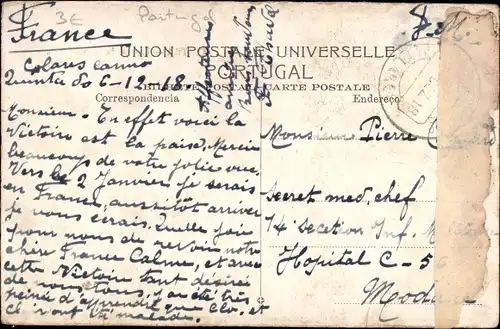 3E
Portugal
France
UNION POSTALE UNIVERSELLE
PORTUGAL
BILHETE POSTAL CARTE POSTALE
Correspondencia
Endereço
Colares
Quinta do 6-12-18
Monsieur - En effet voici la
Victoire est la paise, Mercie
beaucoup de votre jolie vue,
Vers le 2 Janvier je serais
en France, aussitôt arriver
je vous écrais. Quelle joie
pour nous de revoir notre
chère France Calme, et avec
cette Victoire tant désirée
de nous tous, ai été très
peinée d'apprendre que Clo. et
malade.
Monsieur Pierre
Secret med. chef
14 Section Inf. M
Hopital C-56
Modane